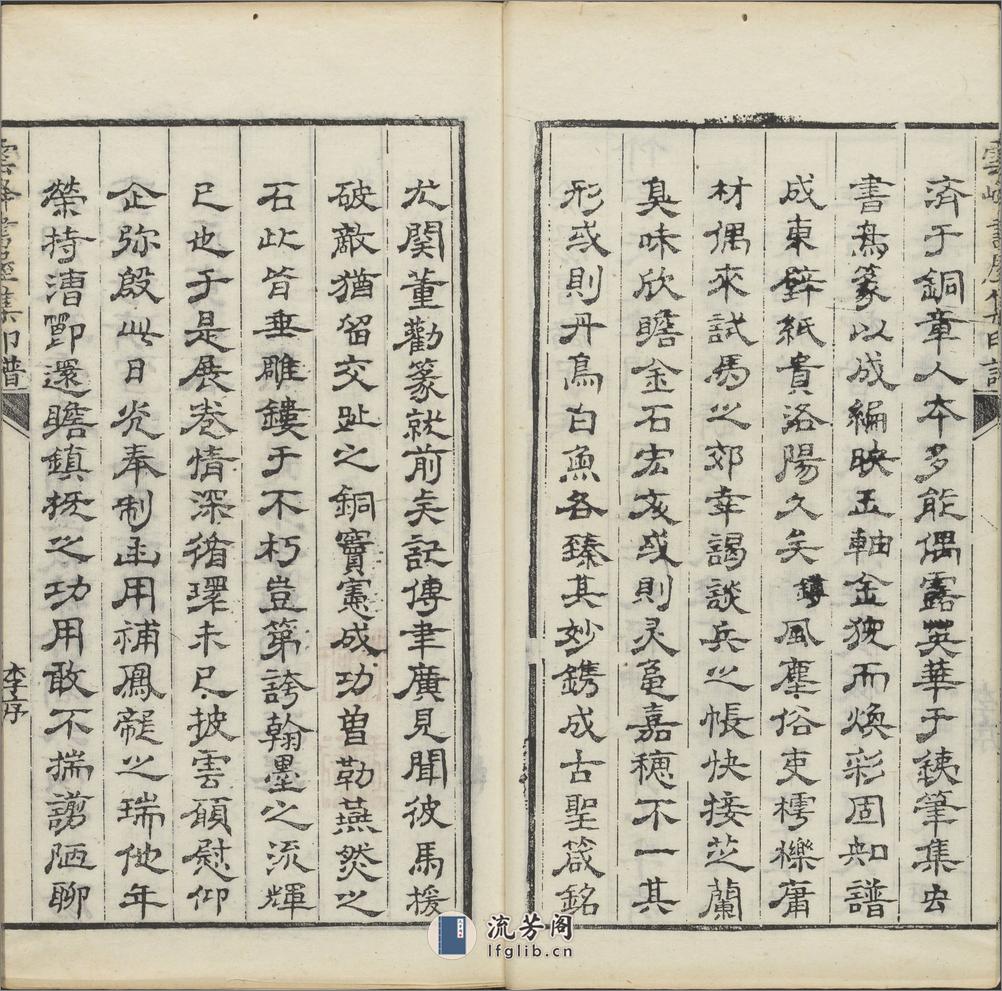 濟于銅章人本多能偶露英華于銕筆集古
書鳥篆以成編映玉軸金猊而煥彩固知譜
成東壁紙貴洛陽久矣鏄風塵俗吏樗櫟庸
材偶來試馬之郊幸謁談兵之帳快接芝蘭
臭味欣瞻金石宏文或則灵龜嘉穗不一其
形或則丹鳥白魚各臻其妙鐫成古聖箴銘
尤関董勸篆就前矣記傳聿廣見聞彼馬援
破敵猶留交趾之銅竇憲成功曽勒燕然之
石此皆垂雕鏤于不朽豈第誇翰墨之流輝
已也于是展卷情深循環未已披雲願慰仰
企弥殷此日光奉制函用補鳳龍之瑞他年
榮持漕節還瞻鎮抚之功用敢不揣謭陋聊
印譜
李序
流芳阁
lfglib.cn